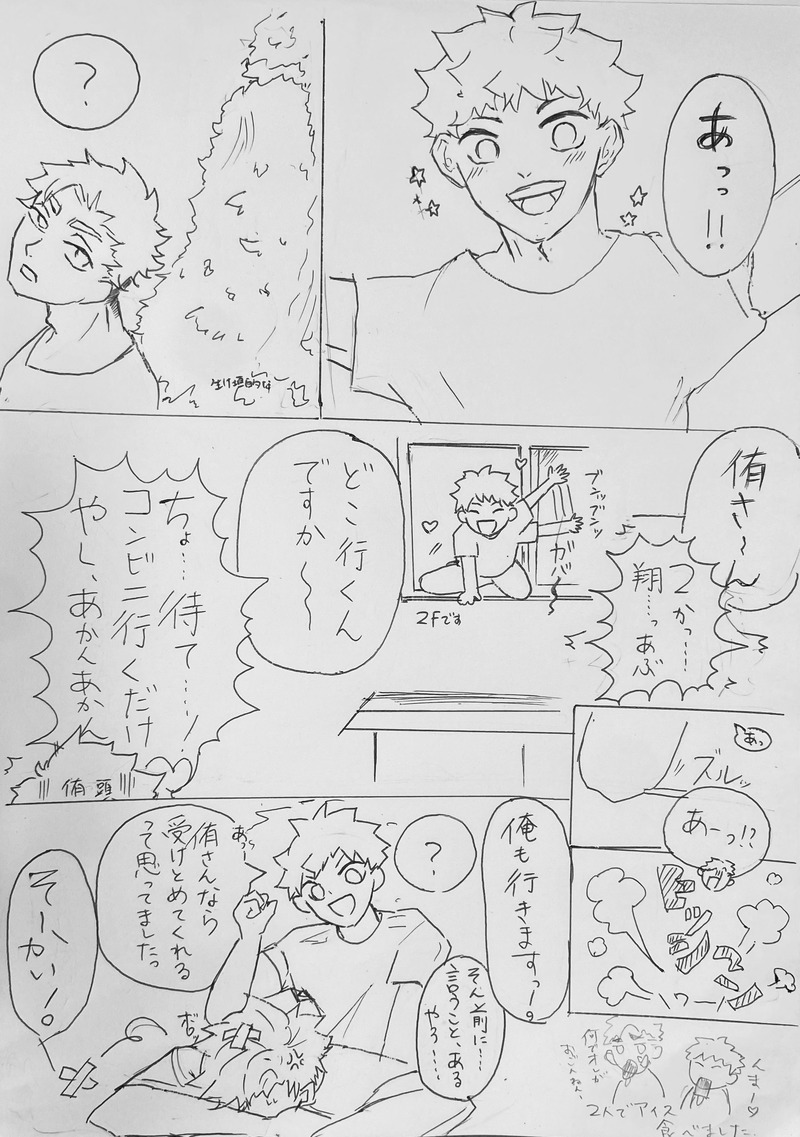 あっっ!!
?
生け垣的な
侑さ〜ん
2かっ……
翔……っあぶ
ブンッブンッ
ガバ〜
2Fです
どこ行くん
ですか〜〜
ちょ……待て……!
コンビニ行くだけ
やし、あかんあかん
侑頭
あっ
ズルッ
あーっ!?
ドシーン
俺も行きますっ!。
?
そん前に…
言うこと、ある
やろ……
あっー
侑さんなら
受けとめてくれる
って思ってましたっ
そーかい!。
んまー♡
何でオレが
2人でアイス
食べました